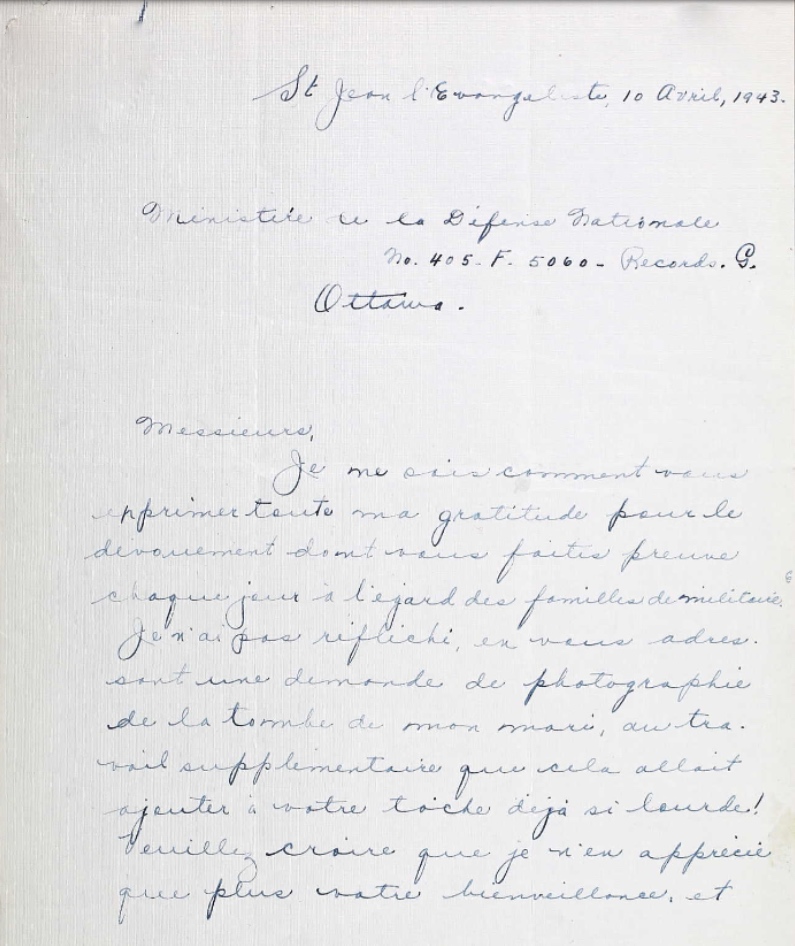 St Jean l'Evangeliste, 10 Avril, 1943.
Ministère de la Défense Nationale
No. 405-F. 5060- Records. G.
Ottawa.
Messieurs,
Je ne sais comment vous
exprimer toute ma gratitude pour le
dévouement dont vous faites preuve
chaque jour à l'égard des familles de militaires.
Je n'ai pas réfléchi, en vous adres-
sant une demande de photographie
de la tombe de mon mari, au tra-
vail supplémentaire que cela allait
ajouter à votre tâche déjà si lourde!
Veuillez croire que je n'en apprécie
que plus votre bienveillance, et